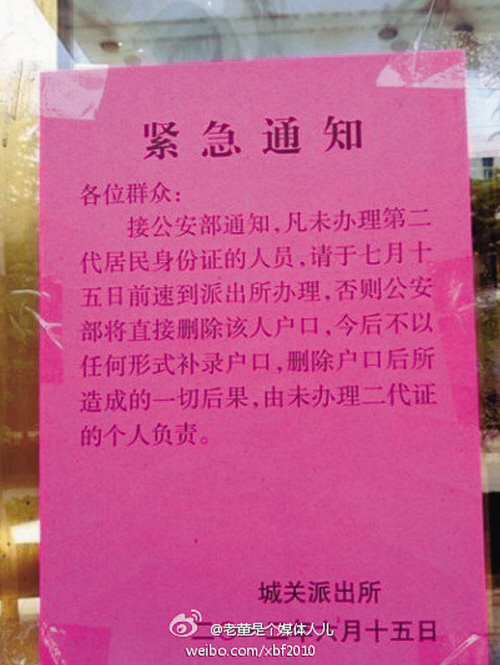 紧急通知
各位群众：
接公安部通知，凡未办理第二
代居民身份证的人员，请于七月十
五日前速到派出所办理，否则公安
部将直接删除该人户口，今后不以
任何形式补录户口，删除户口后所
造成的一切后果，由未办理二代证
的个人负责。
城关派出所
二〇 六月十五日
@老董是个媒体人儿
weibo.com/xbf2010